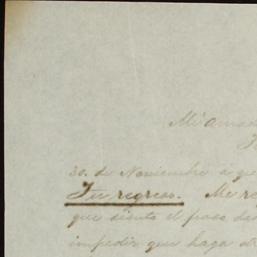 Mi amad
30. de Noviembre a que
Tu regreso. Me re
que siento el paso da
impedir que haga